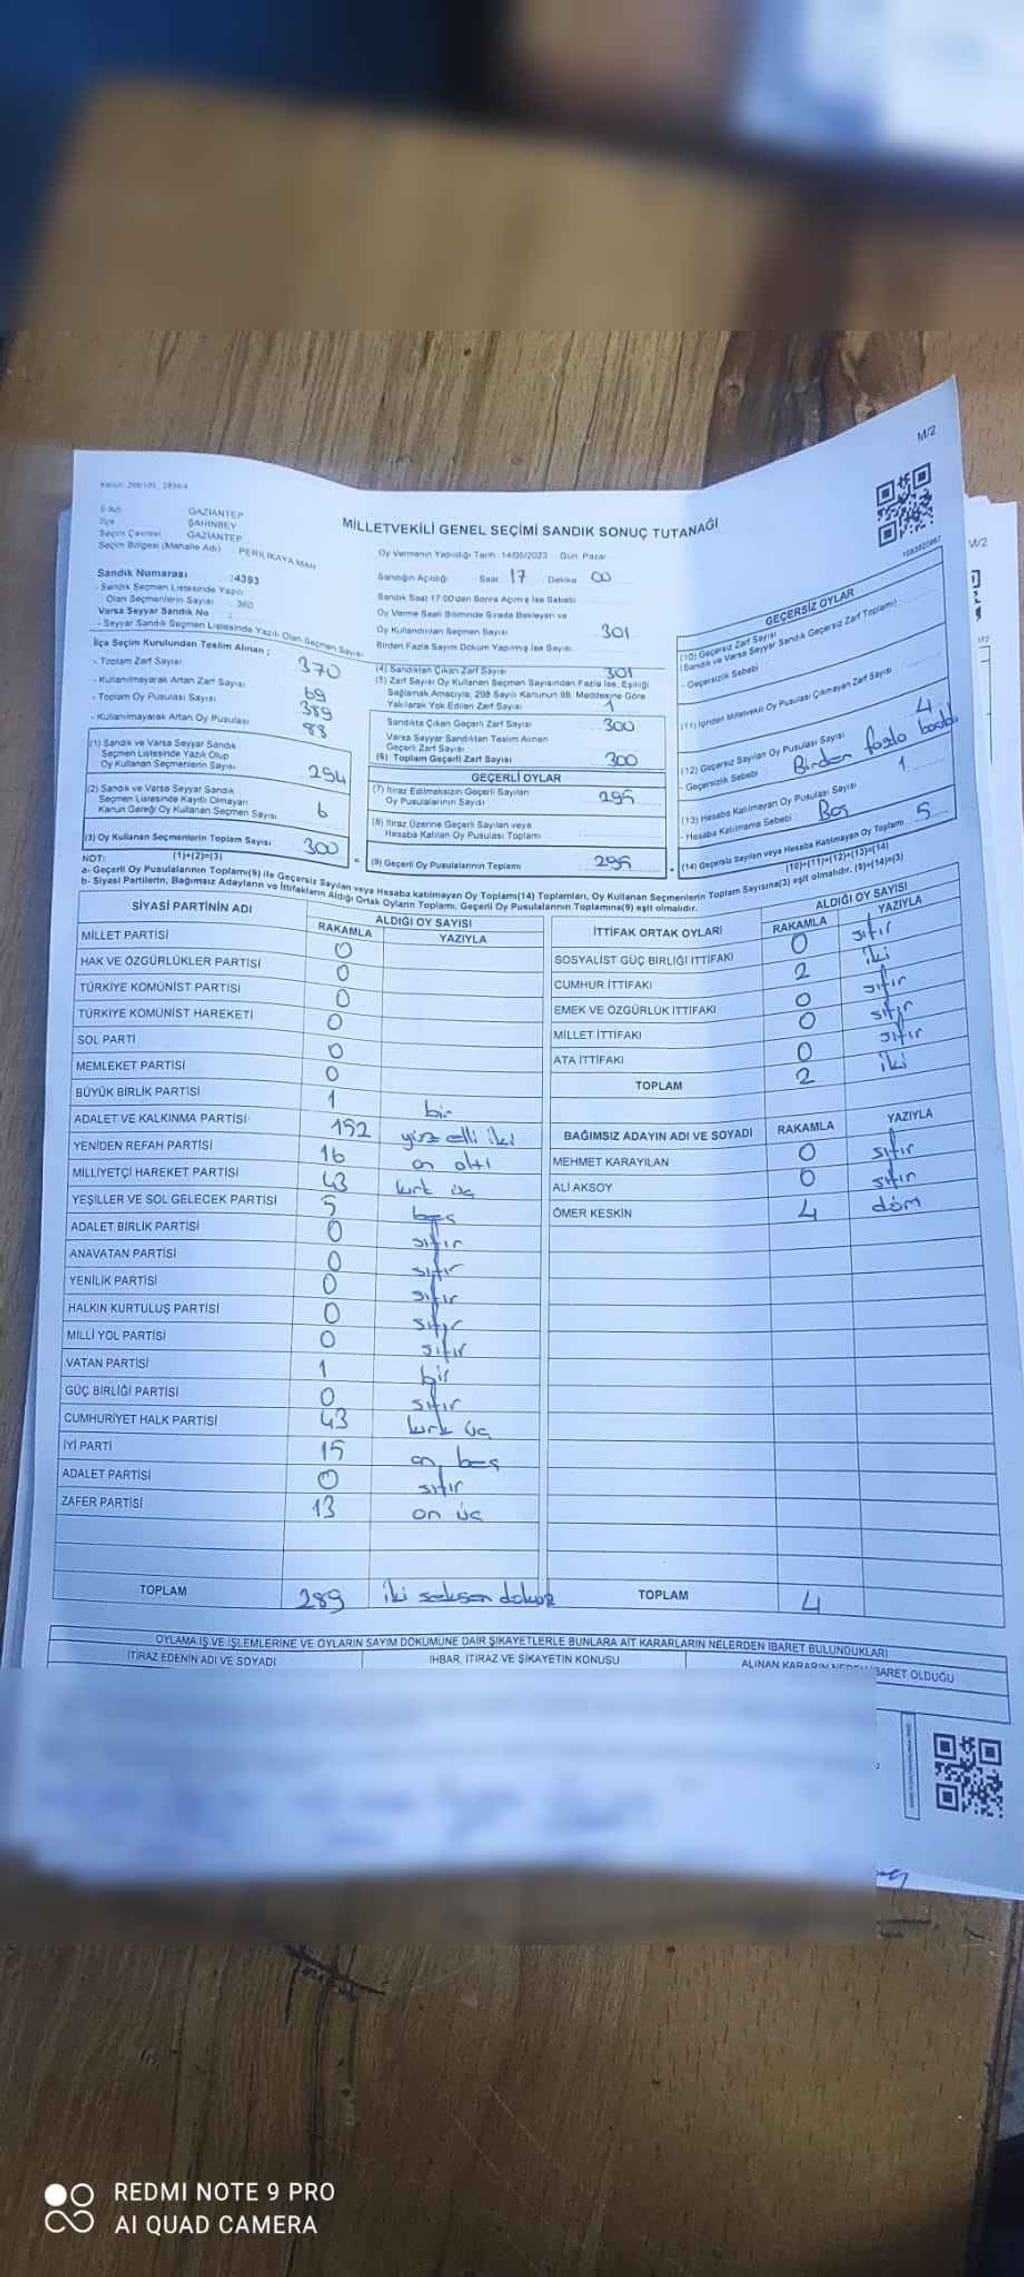 M/2
İl Adı GAZİANTEP
İlçe ŞAHİNBEY
Seçim Çevresi GAZİANTEP
Seçim Bölgesi (Mahalle Adı) PERİLİKAYA MAH
MİLLETVEKİLİ GENEL SEÇİMİ SANDIK SONUÇ TUTANAĞI
Sandık Numarası :4393
- Sandık Seçmen Listesinde Yazılı
Olan Seçmenlerin Sayısı : 360
Varsa Seyyar Sandık No :
- Seyyar Sandık Seçmen Listesinde Yazılı Olan Seçmen Sayısı
İlçe Seçim Kurulundan Teslim Alınan ;
- Toplam Zarf Sayısı 370
- Kullanılmayarak Artan Zarf Sayısı 69
- Toplam Oy Pusulası Sayısı 389
- Kullanılmayarak Artan Oy Pusulası 88
(1) Sandık ve Varsa Seyyar Sandık
Seçmen Listesinde Yazılı Olup
Oy Kullanan Seçmenlerin Sayısı 294
(2) Sandık ve Varsa Seyyar Sandık
Seçmen Listesinde Kayıtlı Olmayan
Kanun Gereği Oy Kullanan Seçmen Sayısı 6
(3) Oy Kullanan Seçmenlerin Toplam Sayısı 300
(1)+(2)=(3)
Oy Vermenin Yapıldığı Tarih : 14/05/2023 Gün: Pazar
Sandığın Açıldığı Saat 17 Dakika 00
Sandık Saat 17:00'den Sonra Açılmış İse Sebebi
Oy Verme Saati Bitiminde Sırada Bekleyen ve
Oy Kullandırılan Seçmen Sayısı 301
Birden Fazla Sayım Döküm Yapılmış İse Sayısı
(4) Sandıktan Çıkan Zarf Sayısı 301
(5) Zarf Sayısı Oy Kullanan Seçmen Sayısından Fazla İse, Eşitliği
Sağlamak Amacıyla, 298 Sayılı Kanunun 98. Maddesine Göre
Yakılarak Yok Edilen Zarf Sayısı 1
Sandıkta Çıkan Geçerli Zarf Sayısı 300
Varsa Seyyar Sandıktan Teslim Alınan
Geçerli Zarf Sayısı
(6) Toplam Geçerli Zarf Sayısı 300
GEÇERLİ OYLAR
(7) İtiraz Edilmeksizin Geçerli Sayılan
Oy Pusulalarının Sayısı 295
(8) İtiraz Üzerine Geçerli Sayılan veya
Hesaba Katılan Oy Pusulası Toplamı
(9) Geçerli Oy Pusulalarının Toplamı 295
GEÇERSİZ OYLAR
(10) Geçersiz Zarf Sayısı
(Sandık ve Varsa Seyyar Sandık Geçersiz Zarf Toplamı)
- Geçersizlik Sebebi
(11) İçinden Milletvekili Oy Pusulası Çıkmayan Zarf Sayısı
(12) Geçersiz Sayılan Oy Pusulası Sayısı 4
- Geçersizlik Sebebi Birden fazla
(13) Hesaba Katılmayan Oy Pusulası Sayısı 1
- Hesaba Katılmama Sebebi Boş
(14) Geçersiz Sayılan veya Hesaba Katılmayan Oy Toplamı 5
(10)+(11)+(12)+(13)=(14)
NOT:
a- Geçerli Oy Pusulalarının Toplamı(9) ile Geçersiz Sayılan veya Hesaba katılmayan Oy Toplamı(14) Toplamları, Oy Kullanan Seçmenlerin Toplam Sayısına(3) eşit olmalıdır. (9)+(14)=(3)
b- Siyasi Partilerin, Bağımsız Adayların ve İttifakların Aldığı Ortak Oyların Toplamı, Geçerli Oy Pusulalarının Toplamına(9) eşit olmalıdır.
SİYASİ PARTİNİN ADI ALDIĞI OY SAYISI
RAKAMLA YAZIYLA
MİLLET PARTİSİ 0
HAK VE ÖZGÜRLÜKLER PARTİSİ 0
TÜRKİYE KOMÜNİST PARTİSİ 0
TÜRKİYE KOMÜNİST HAREKETİ 0
SOL PARTİ 0
MEMLEKET PARTİSİ 0
BÜYÜK BİRLİK PARTİSİ 1 bir
ADALET VE KALKINMA PARTİSİ 152 yüz elli iki
YENİDEN REFAH PARTİSİ 16 on altı
MİLLİYETÇİ HAREKET PARTİSİ 43 kırk üç
YEŞİLLER VE SOL GELECEK PARTİSİ 5 beş
ADALET BİRLİK PARTİSİ 0 sıfır
ANAVATAN PARTİSİ 0 sıfır
YENİLİK PARTİSİ 0 sıfır
HALKIN KURTULUŞ PARTİSİ 0 sıfır
MİLLİ YOL PARTİSİ 0 sıfır
VATAN PARTİSİ 1 bir
GÜÇ BİRLİĞİ PARTİSİ 0 sıfır
CUMHURİYET HALK PARTİSİ 43 kırk üç
İYİ PARTİ 15 on beş
ADALET PARTİSİ 0 sıfır
ZAFER PARTİSİ 13 on üç
TOPLAM 289 iki seksen dokuz
İTTİFAK ORTAK OYLARI ALDIĞI OY SAYISI
RAKAMLA YAZIYLA
SOSYALİST GÜÇ BİRLİĞİ İTTİFAKI 0 sıfır
CUMHUR İTTİFAKI 2 iki
EMEK VE ÖZGÜRLÜK İTTİFAKI 0 sıfır
MİLLET İTTİFAKI 0 sıfır
ATA İTTİFAKI 0 sıfır
TOPLAM 2 iki
BAĞIMSIZ ADAYIN ADI VE SOYADI RAKAMLA YAZIYLA
MEHMET KARAYILAN 0 sıfır
ALİ AKSOY 0 sıfır
ÖMER KESKİN 4 döm
TOPLAM 4
OYLAMA İŞ VE İŞLEMLERİNE VE OYLARIN SAYIM DÖKÜMÜNE DAİR ŞİKAYETLERLE BUNLARA AİT KARARLARIN NELERDEN İBARET BULUNDUKLARI
İTİRAZ EDENİN ADI VE SOYADI İHBAR, İTİRAZ VE ŞİKAYETİN KONUSU ALINAN KARARIN OLDUĞU
M/2
REDMI NOTE 9 PRO
AI QUAD CAMERA